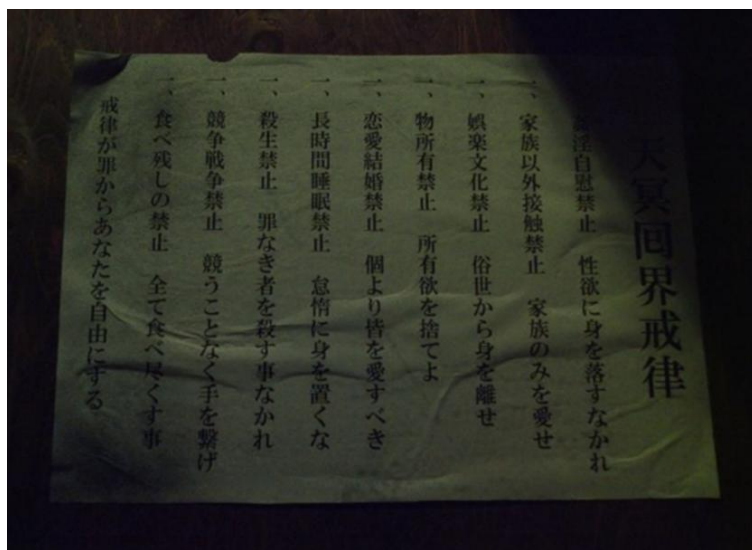 天冥回界戒律
淫自慰禁止 性欲に身を落すなかれ
一、家族以外接触禁止 家族のみを愛せ
一、娯楽文化禁止 俗世から身を離せ
一、物所有禁止 所有欲を捨てよ
一、恋愛結婚禁止 個より皆を愛すべき
一、長時間睡眠禁止 怠惰に身を置くな
一、殺生禁止 罪なき者を殺す事なかれ
一、競争戦争禁止 競うことなく手を繋げ
一、食べ残しの禁止 全て食べ尽くす事
戒律が罪からあなたを自由にする